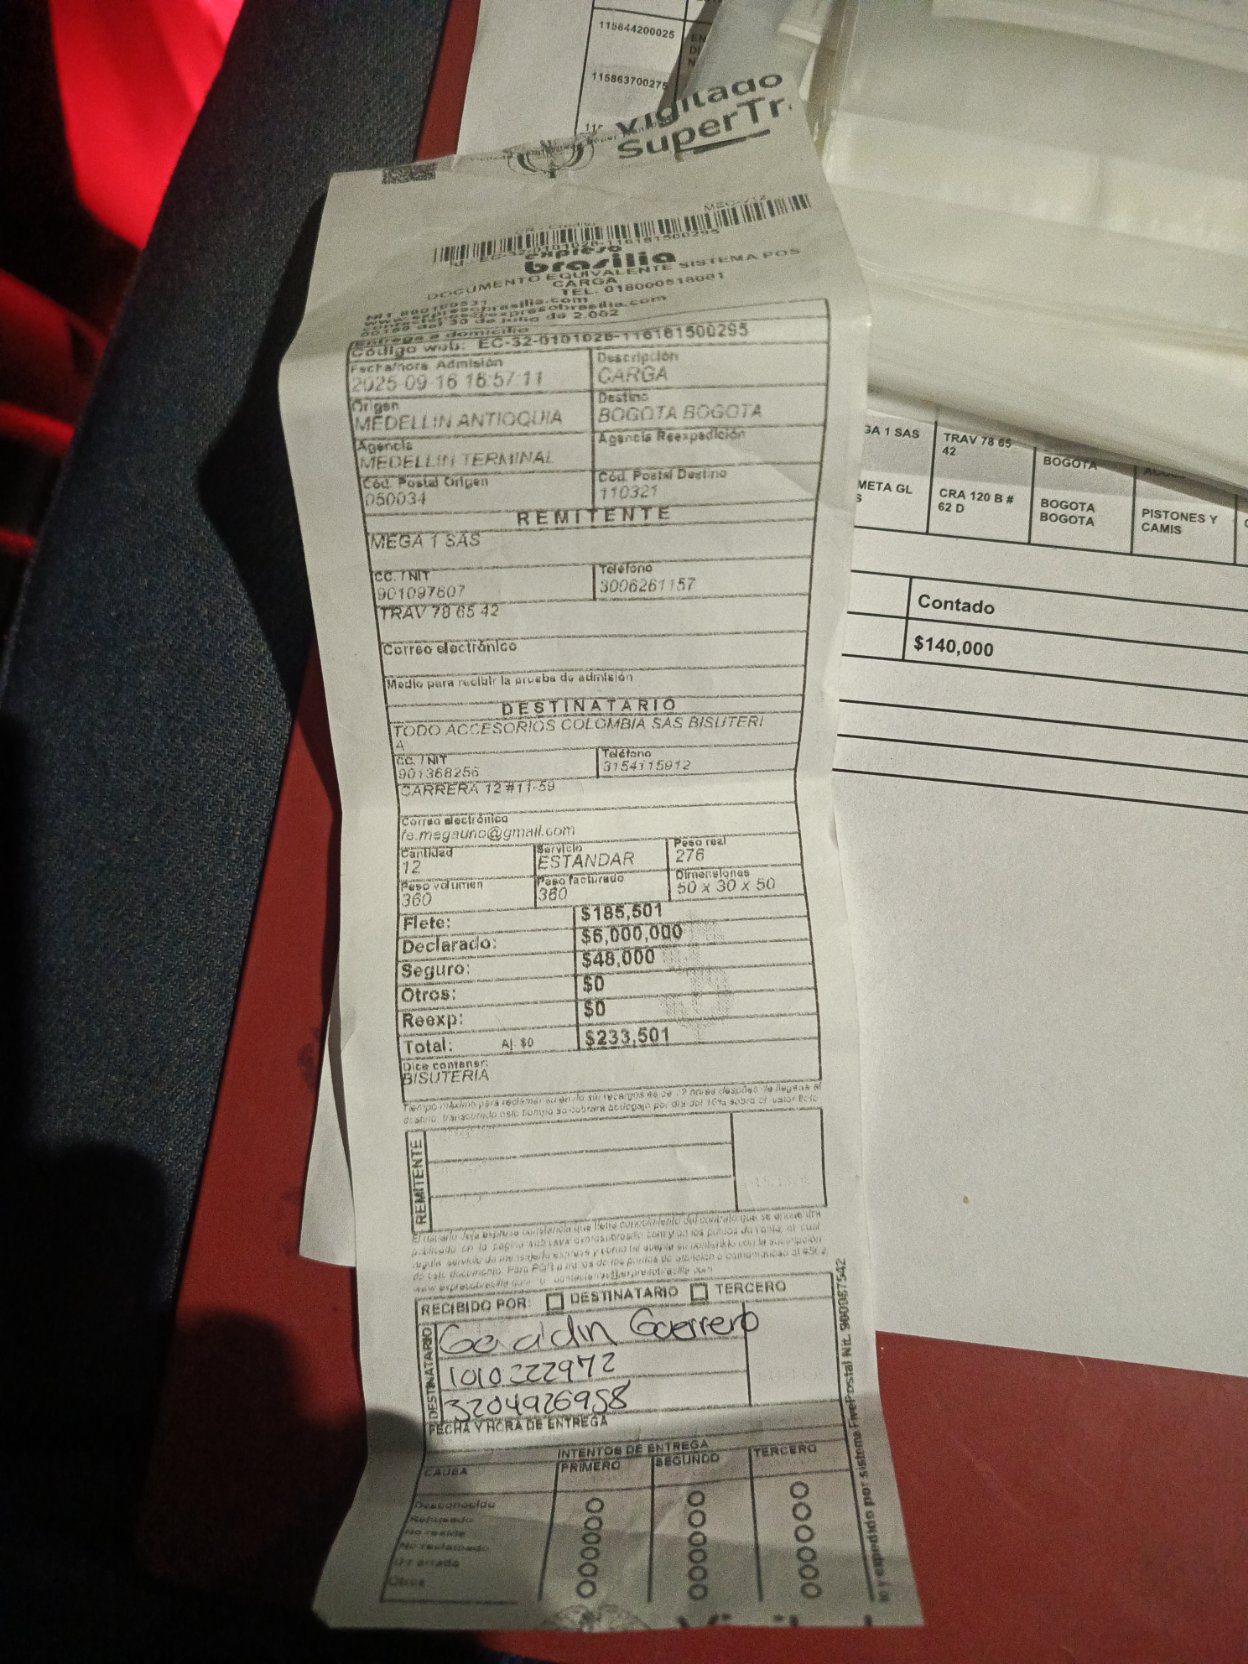 115644200025
115863700275
Vigilado
SuperTr
EC-32-0101026-116181500295
expreso
brasilia
DOCUMENTO EQUIVALENTE SISTEMA POS
CARGA
TEL. 018000518001
00188 del 30 de julio de 2.002
Entrega a domicilio
Código web: EC-32-0101026-116181500295
Fecha/hora Admisión
2025-09-16 16:57:11
Descripción
CARGA
Origen
MEDELLIN ANTIOQUIA
Destino
BOGOTA BOGOTA
Agencia
MEDELLIN TERMINAL
Agencia Reexpedición
Cód. Postal Origen
050034
Cód. Postal Destino
110321
REMITENTE
MEGA 1 SAS
CC. / NIT
901097607
Teléfono
3006261157
TRAV 78 65 42
Correo electrónico
Medio para recibir la prueba de admisión
DESTINATARIO
TODO ACCESORIOS COLOMBIA SAS BISUTERI
A
CC. / NIT
901368256
Teléfono
3154115912
CARRERA 12 #11-59
Correo electrónico
fe.megauno@gmail.com
Cantidad
12
Servicio
ESTANDAR
Peso real
276
Peso volumen
360
Peso facturado
360
Dimensiones
50 x 30 x 50
Flete: $185,501
Declarado: $6,000,000
Seguro: $48,000
Otros: $0
Reexp: $0
Total: Aj. $0 $233,501
Dice contener:
BISUTERIA
REMITENTE
RECIBIDO POR: DESTINATARIO TERCERO
DESTINATARIO
Geraldin Guerrero
1010222972
3204926958
FECHA Y HORA DE ENTREGA
INTENTOS DE ENTREGA
CAUSA PRIMERO SEGUNDO TERCERO
Desconocido
Rehusado
No reside
No reclamado
Dir errada
Otros
y expedido por sistema FivePostal Nit. 900087542
GA 1 SAS
TRAV 78 65
42
BOGOTA
META GL
S
CRA 120 B #
62 D
BOGOTA
BOGOTA
PISTONES Y
CAMIS
Contado
$140,000